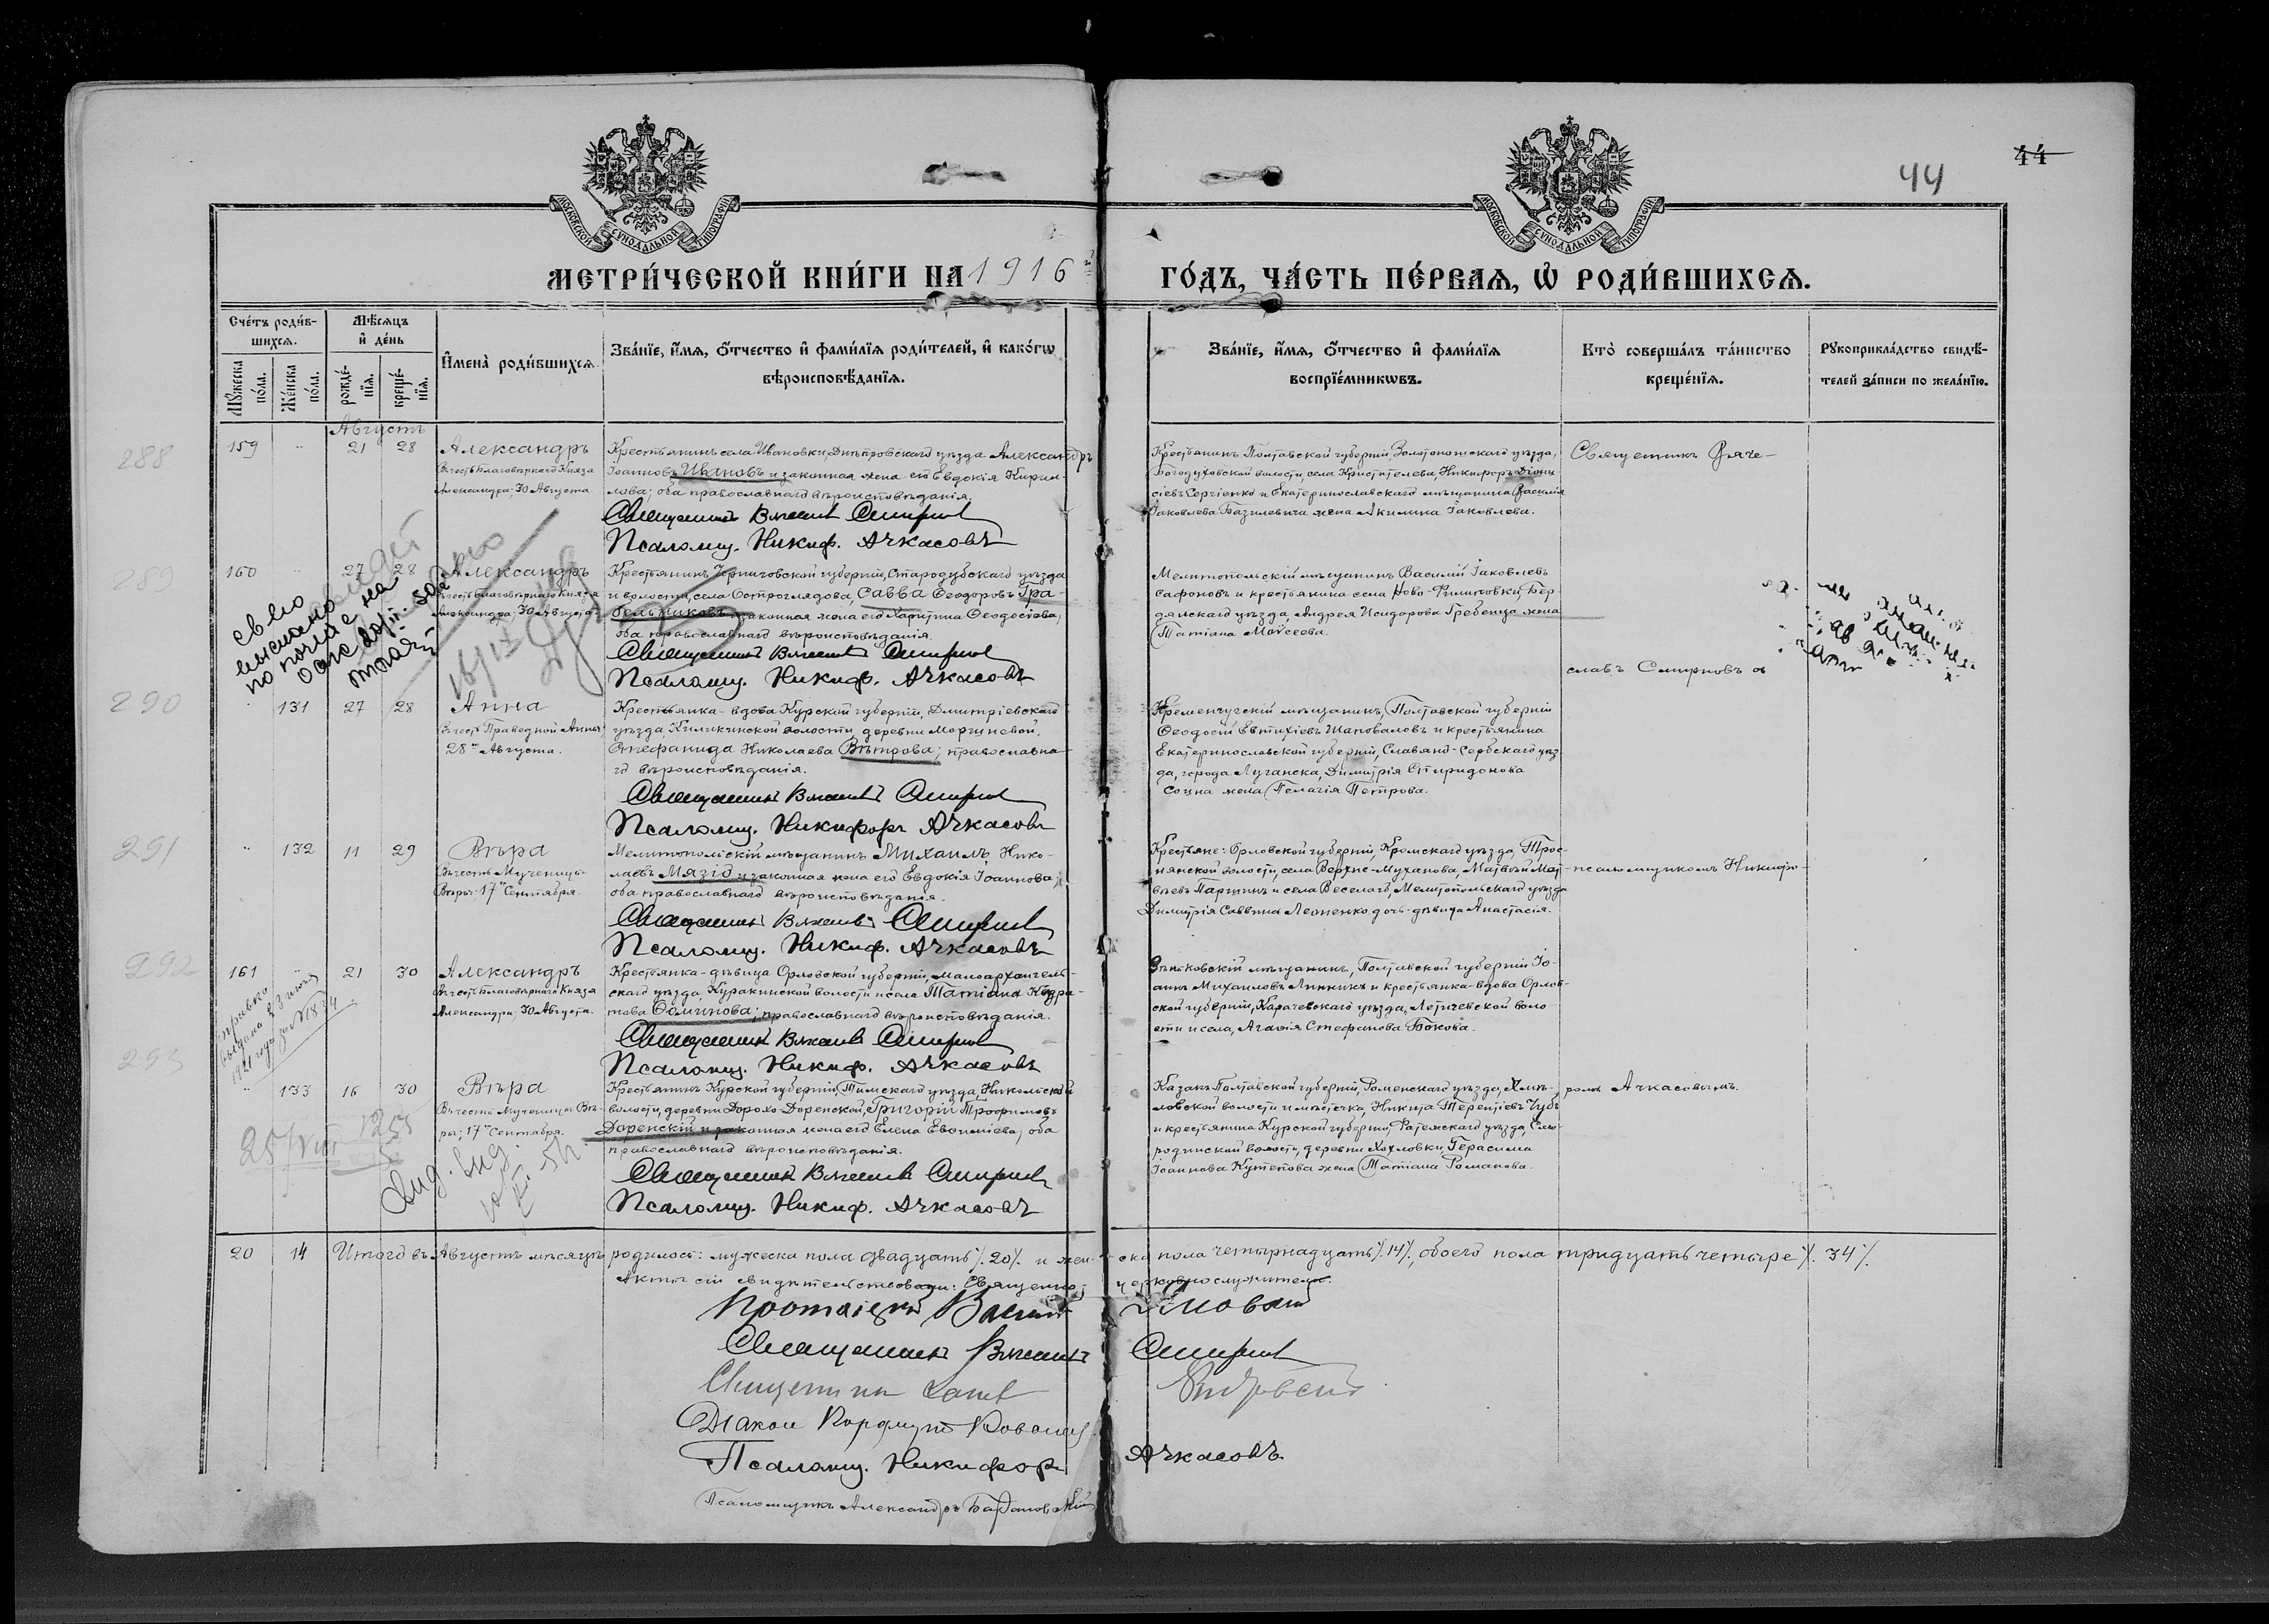 44
44
МОСКОВСКОЙ СѴНОДАЛЬНОЙ ТИПОГРАФІИ
МОСКОВСКОЙ СѴНОДАЛЬНОЙ ТИПОГРАФІИ
МЕТРИ́ЧЕСКОЙ КНИ́ГИ НА 1916й ГО́ДЪ, ЧА́СТЬ ПЕ́РВАѦ, Ѡ҆ РОДИ́ВШИХСѦ.
Сче́тъ роди́в-
шихсѧ.
Мѹ́жеска по́ла.
Же́нска по́ла.
Мѣ́сѧцъ и҆ де́нь
рожде́-
нїѧ.
креще́-
нїѧ.
И҆мена̀ роди́вшихсѧ.
Зва́нїе, и҆́мѧ, ѻ҆́тчество и҆ фами́лїѧ роди́телей, и҆ како́гѡ
вѣроисповѣ́данїѧ.
Зва́нїе, и҆́мѧ, ѻ҆́тчество и҆ фами́лїѧ
воспрїе́мникѡвъ.
Кто̀ соверша́лъ та́инство
креще́нїѧ.
Рѹкоприкла́дство свидѣ́-
телей за́писи по жела́нїю.
Августъ
288
159 " 21 28 Александръ
Въ честь Благовѣрнаго Князя
Александра; 30 Августа
Крестьянинъ села Ивановки, Днѣпровскаго уѣзда Александръ
Іоанновъ Ивановъ и законная жена его Евдокія Кирил-
лова; оба православнаго вѣроисповѣданія.
Священникъ Вячеславъ Смирновъ
Псаломщ. Никиф. Ачкасовъ
Крестьянинъ Полтавской губерніи, Золотоношскаго уѣзда,
Богодуховской волости, села Христителева, Никифоръ Діони-
сіевъ Сергіенко и Екатеринославскаго мѣщанина Василія
Іаковлева Базилевича жена Акилина Іаковлева.
Священникъ Вяче-
289
160 " 27 28 Александръ
Въ честь Благовѣрнаго Князя
Александра; 30 Августа
Крестьянинъ Черниговской губерніи, Стародубскаго уѣзда
и волости, села Остроглядова, Савва Ѳеодоровъ Гра-
бельниковъ и законная жена его Харитина Ѳеодосіева,
оба православнаго вѣроисповѣданія.
Священникъ Вячеславъ Смирновъ
Псаломщ. Никиф. Ачкасовъ
Мелитопольскій мѣщанинъ Василій Іаковлевъ
Сафоновъ и крестьянина села Ново-Филиповки, Бер-
дянскаго уѣзда, Андрея Исидорова Гребенца жена
Татіана Моѵсеева.
славъ Смирновъ съ
290
" 131 27 28 Анна
Въ честь Праведной Анны,
28го Августа.
Крестьянка-вдова Курской губерніи, Дмитріевскаго
уѣзда, Киликинской волости, деревни Моршневой,
Стефанида Николаева Вѣтрова; православна-
го вѣроисповѣданія.
Священникъ Вячеславъ Смирновъ
Псаломщ. Никифоръ Ачкасовъ
Кременчугскій мѣщанинъ, Полтавской губерніи
Ѳеодосій Евтихіевъ Шаповаловъ и крестьянина
Екатеринославской губерніи, Славяно-Сербскаго уѣз-
да, города Луганска, Димитрія Спиридонова
Соцна жена Пелагія Петрова.
291
" 132 11 29 Вѣра
Въ честь Мученицы
Вѣры; 17го Сентября.
Мелитопольскій мѣщанинъ Михаилъ Нико-
лаевъ Мязій и законная жена его Евдокія Іоаннова;
оба православнаго вѣроисповѣданія.
Священникъ Вячеславъ Смирновъ
Псаломщ. Никиф. Ачкасовъ
Крестьяне: Орловской губерніи, Кромскаго уѣзда, Трос-
нянской волости, села Верхне-Муханова, Матвѣй Мат-
вѣевъ Паршинъ и села Веселаго, Мелитопольскаго уѣзда
Димитрія Саввина Леоненко дочь-дѣвица Анастасія.
псаломщикомъ Никифо-
292
161 " 21 30 Александръ
Въ честь Благовѣрнаго Князя
Александра; 30 Августа.
Крестьянка-дѣвица Орловской губерніи, Малоархангель-
скаго уѣзда, Куракинской волости и села Татіана Кодра-
това Ѳомичова; православнаго вѣроисповѣданія.
Священникъ Вячеславъ Смирновъ
Псаломщ. Никиф. Ачкасовъ
Зѣньковскій мѣщанинъ, Полтавской губерніи Іо-
аннъ Михаиловъ Линникъ и крестьянка-вдова Орлов-
ской губерніи, Карачевскаго уѣзда, Летичевской воло
сти и села, Агафія Стефанова Бокова.
293
" 133 16 30 Вѣра
Въ честь Мученицы Вѣ-
ры; 17го Сентября.
Крестьянинъ Курской губерніи, Тимскаго уѣзда, Никольской
волости, деревни Дорохо-Доренской, Григорій Трофимовъ
Доренскій и законная жена его Елена Евѳиміева; оба
православнаго вѣроисповѣданія.
Священникъ Вячеславъ Смирновъ
Псаломщ. Никиф. Ачкасовъ
Казакъ Полтавской губерніи, Роменскаго уѣзда, Хмѣ-
ловской волости и мѣстечка, Никита Терентіевъ Чубъ
и крестьянина Курской губерніи, Фатежскаго уѣзда, Смо-
родинской волости, деревни Хохловки, Герасима
Іоаннова Кутепова жена Татіана Романова.
ромъ Ачкасовымъ.
20 14 Итого въ Августѣ мѣсяцѣ родилось: мужеска пола двадцать /.20/. и жен-ска пола четырнадцать /.14/., обоего пола тридцать четыре /. 34/.
Акты сіи свидѣтельствовали: Священно-церковнослужители.
Протоіерей
Священникъ Вячеславъ Смирновъ
Священникъ
Псаломщ. Никифоръ Ачкасовъ.
Псаломщикъ Александръ